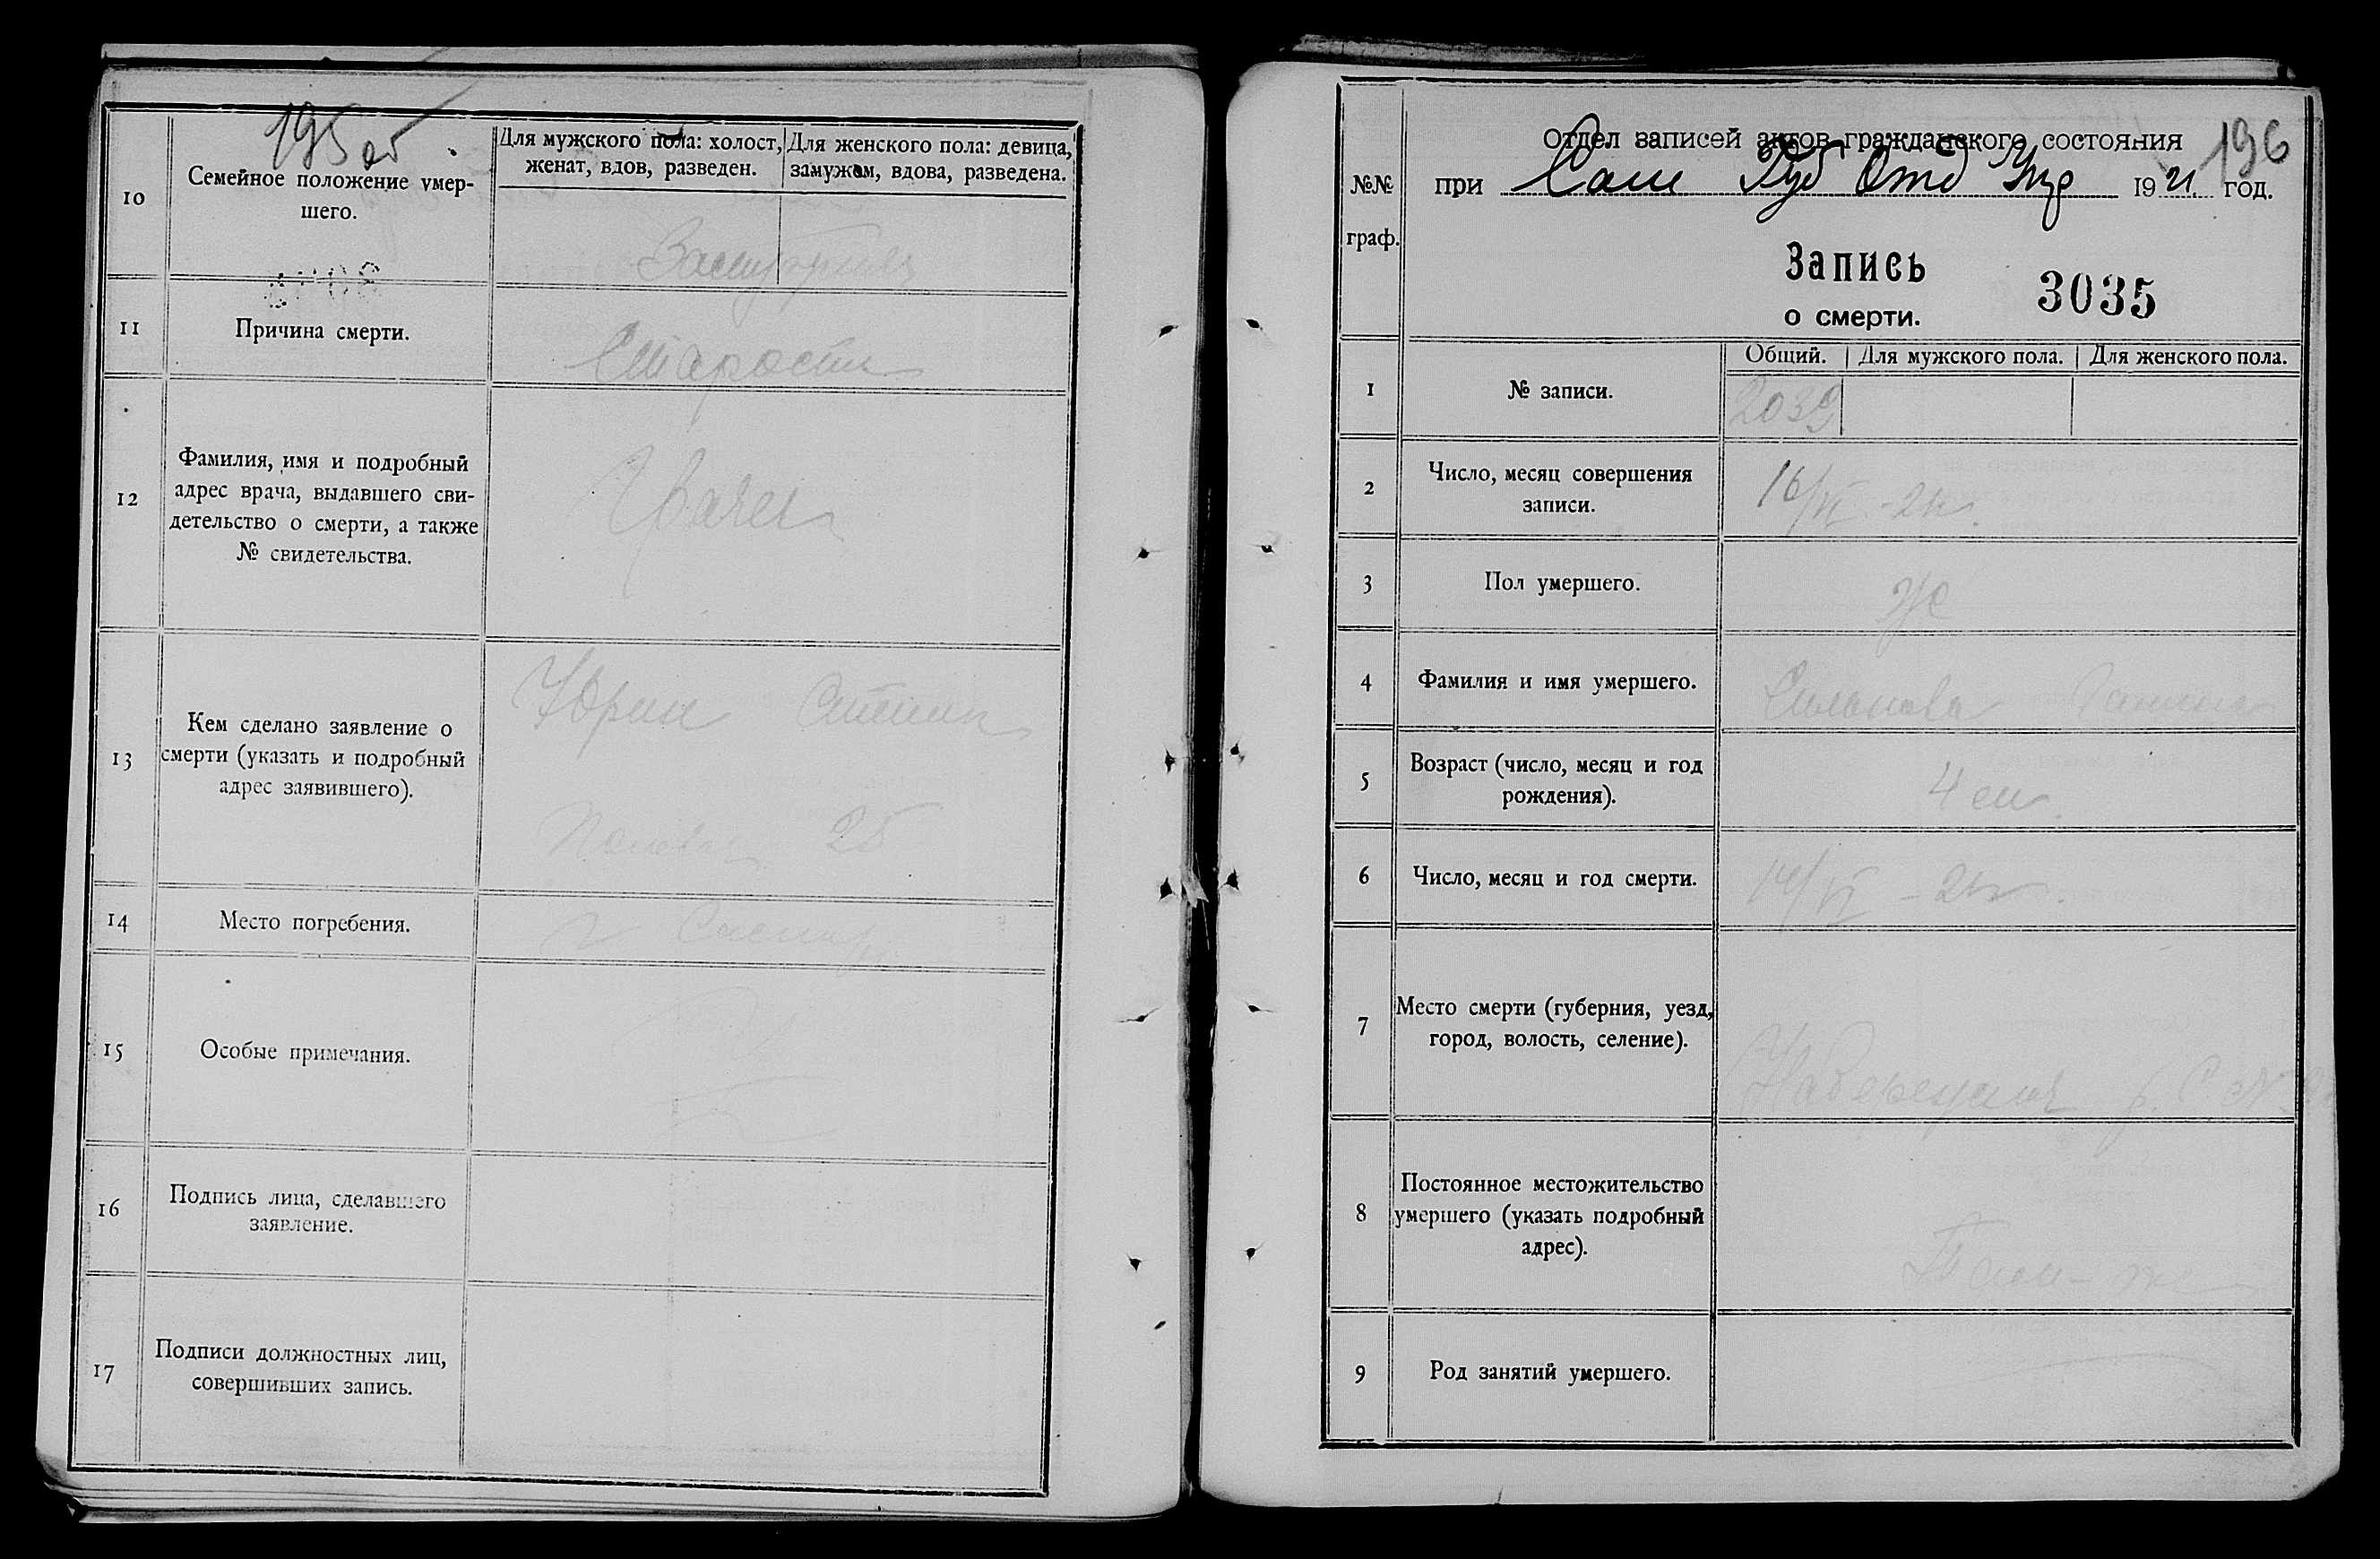 195 об
10
Семейное положение умер-
шего.
Для мужского пола: холост,
женат, вдов, разведен.
Для женского пола: девица,
замужем, вдова, разведена.
11
Причина смерти.
Старость
12
Фамилия, имя и подробный
адрес врача, выдавшего сви-
детельство о смерти, а также
№ свидетельства.
13
Кем сделано заявление о
смерти (указать и подробный
адрес заявившего).
25
14
Место погребения.
г Самара
15
Особые примечания.
16
Подпись лица, сделавшего
заявление.
17
Подписи должностных лиц,
совершивших запись.
196
№№
граф.
Отдел записей актов гражданского состояния
при Сам Губ Отд Упр 1921 год.
Запись
о смерти.
3035
Общий. Для мужского пола. Для женского пола.
1
№ записи.
2
Число, месяц совершения
записи.
16/VI - 21 г.
3
Пол умершего.
Ж
4
Фамилия и имя умершего.
5
Возраст (число, месяц и год
рождения).
4 м
6
Число, месяц и год смерти.
/VI - 21 г.
7
Место смерти (губерния, уезд,
город, волость, селение).
Набережная р.
8
Постоянное местожительство
умершего (указать подробный
адрес).
Там-же
9
Род занятий умершего.